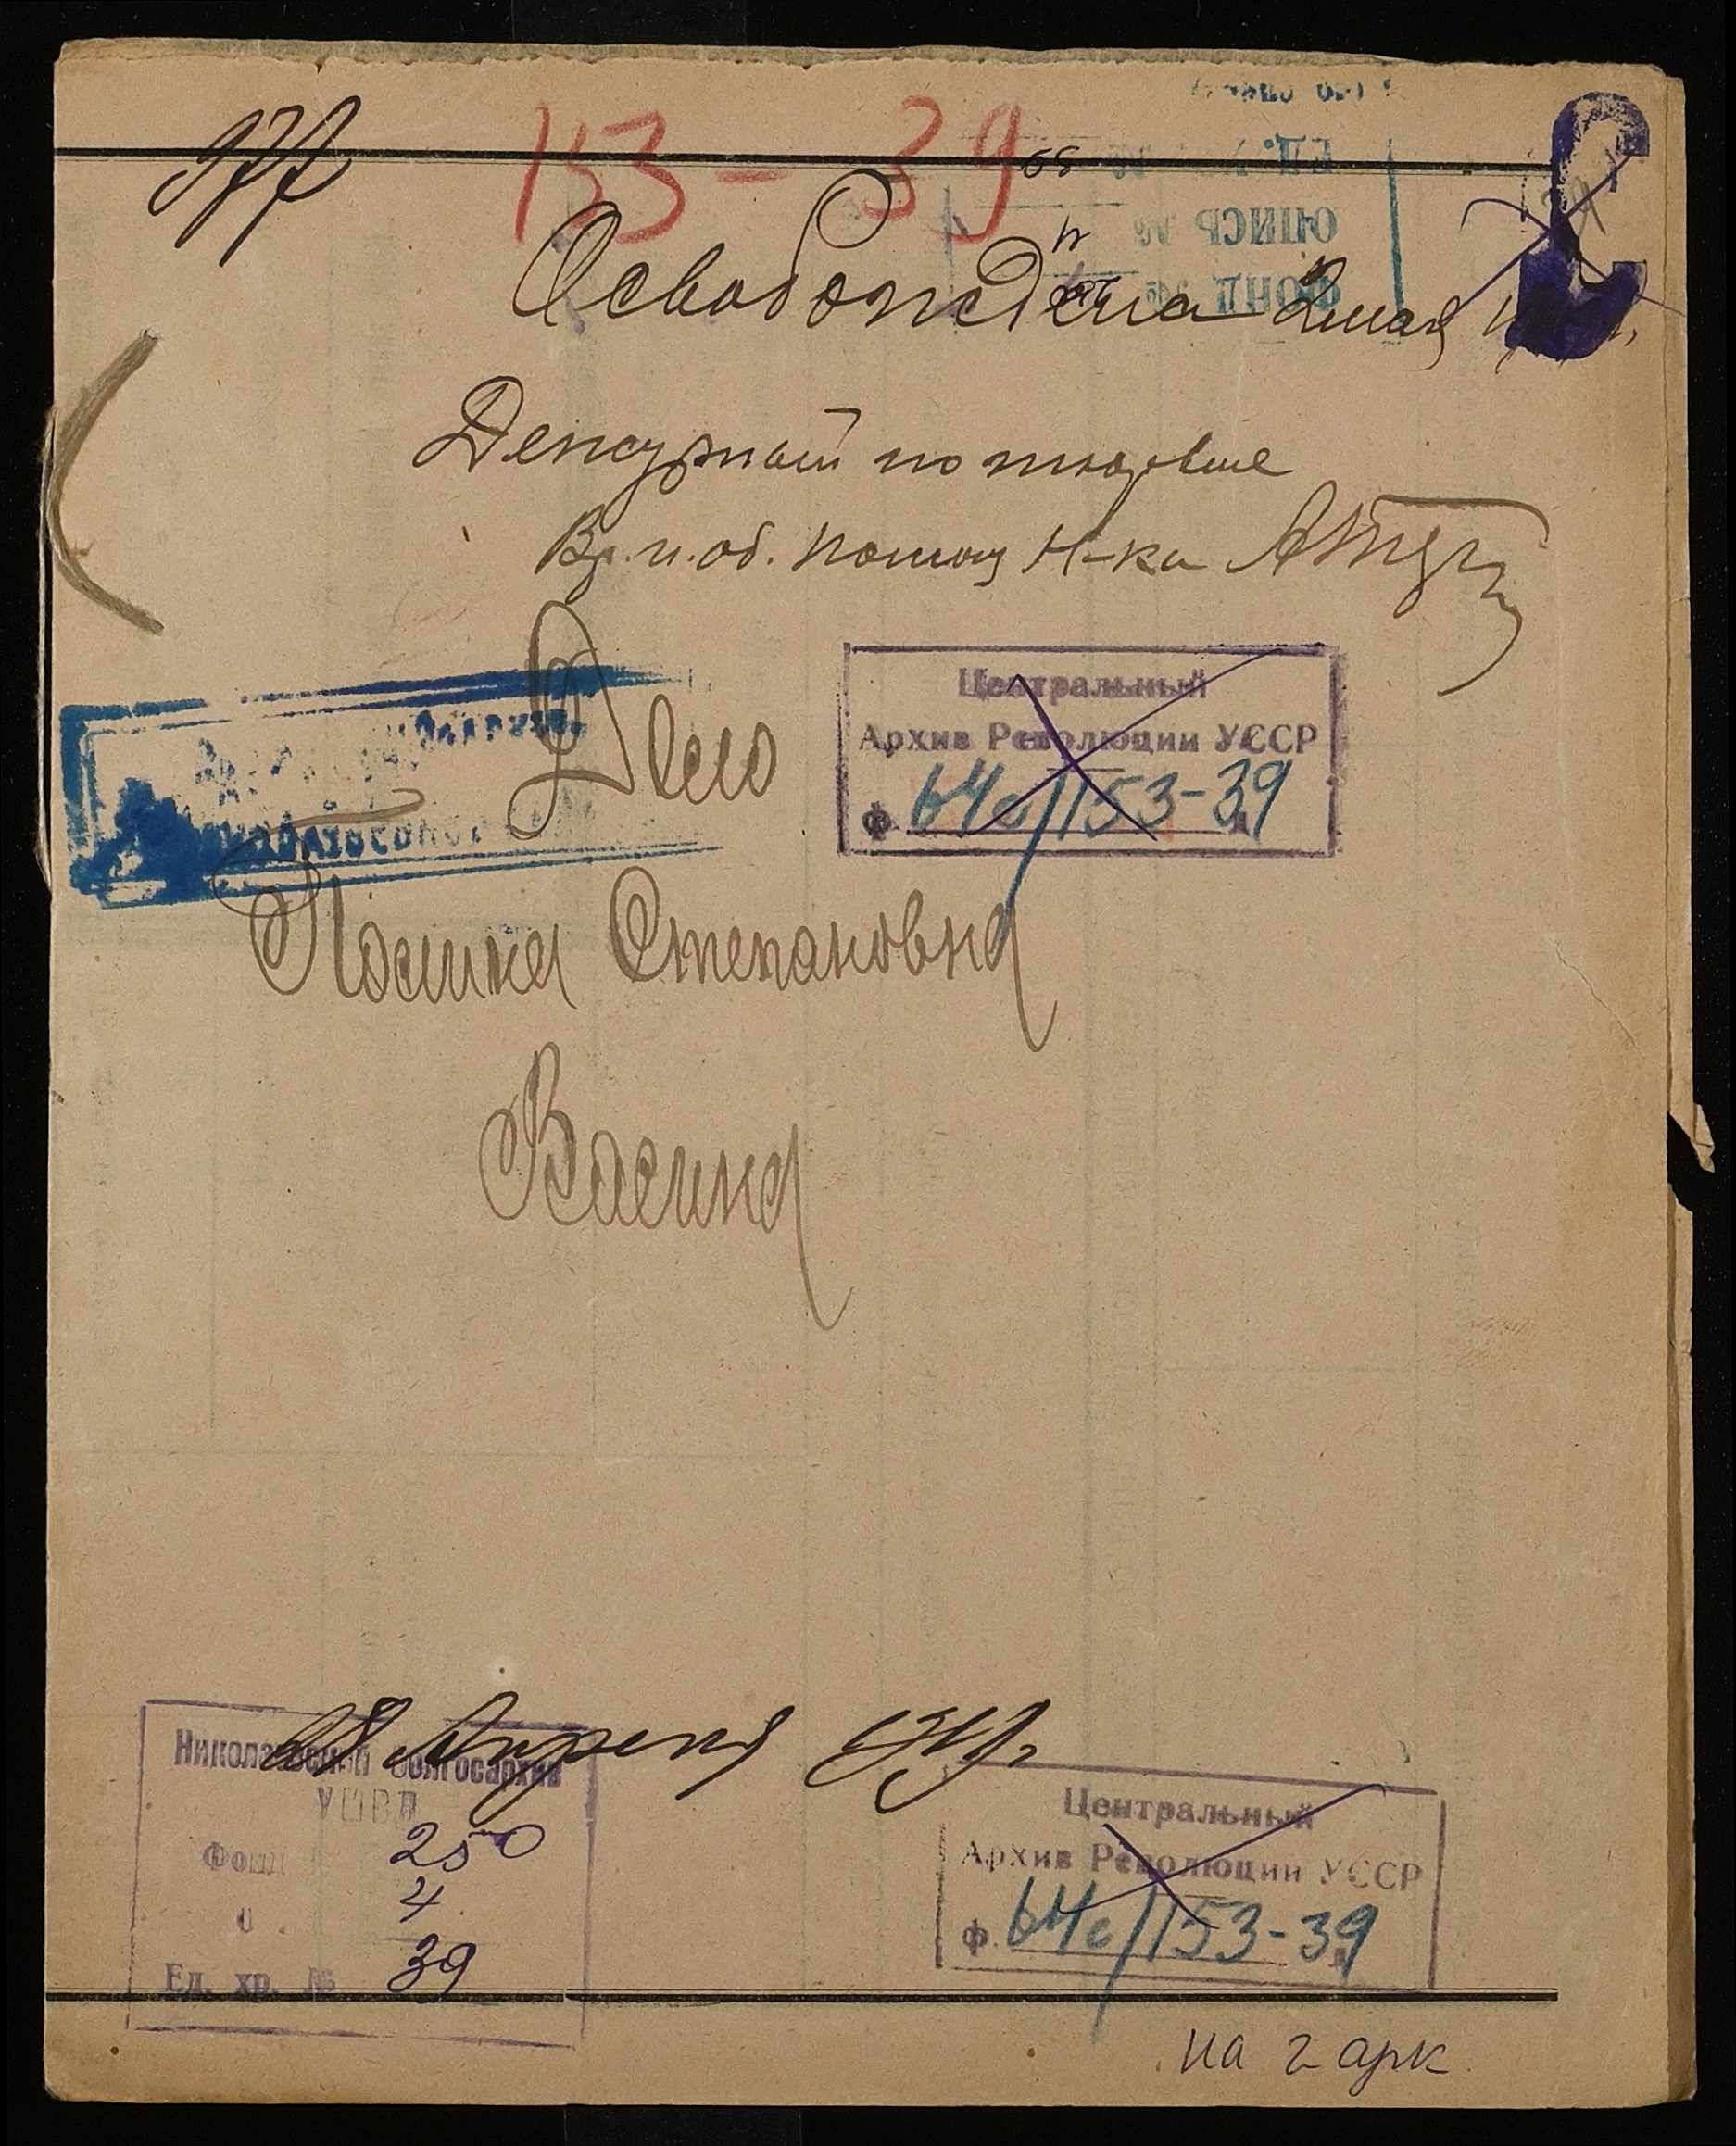 977
153-39
39
4
Освобождена 2 мая
Дежурный по тюрьме
Вр. и. об. помощ Н-ка
Дело
Центральный
Архив Революции УССР
ф. 64с/153-39
Степановна
Васина
Апреля
Николаевский Облгосархив
УНВД
Фонд 250
4
Ед. хр. № 39
Центральный
Архив Революции УССР
ф. 64с/153-39
на 2 арк